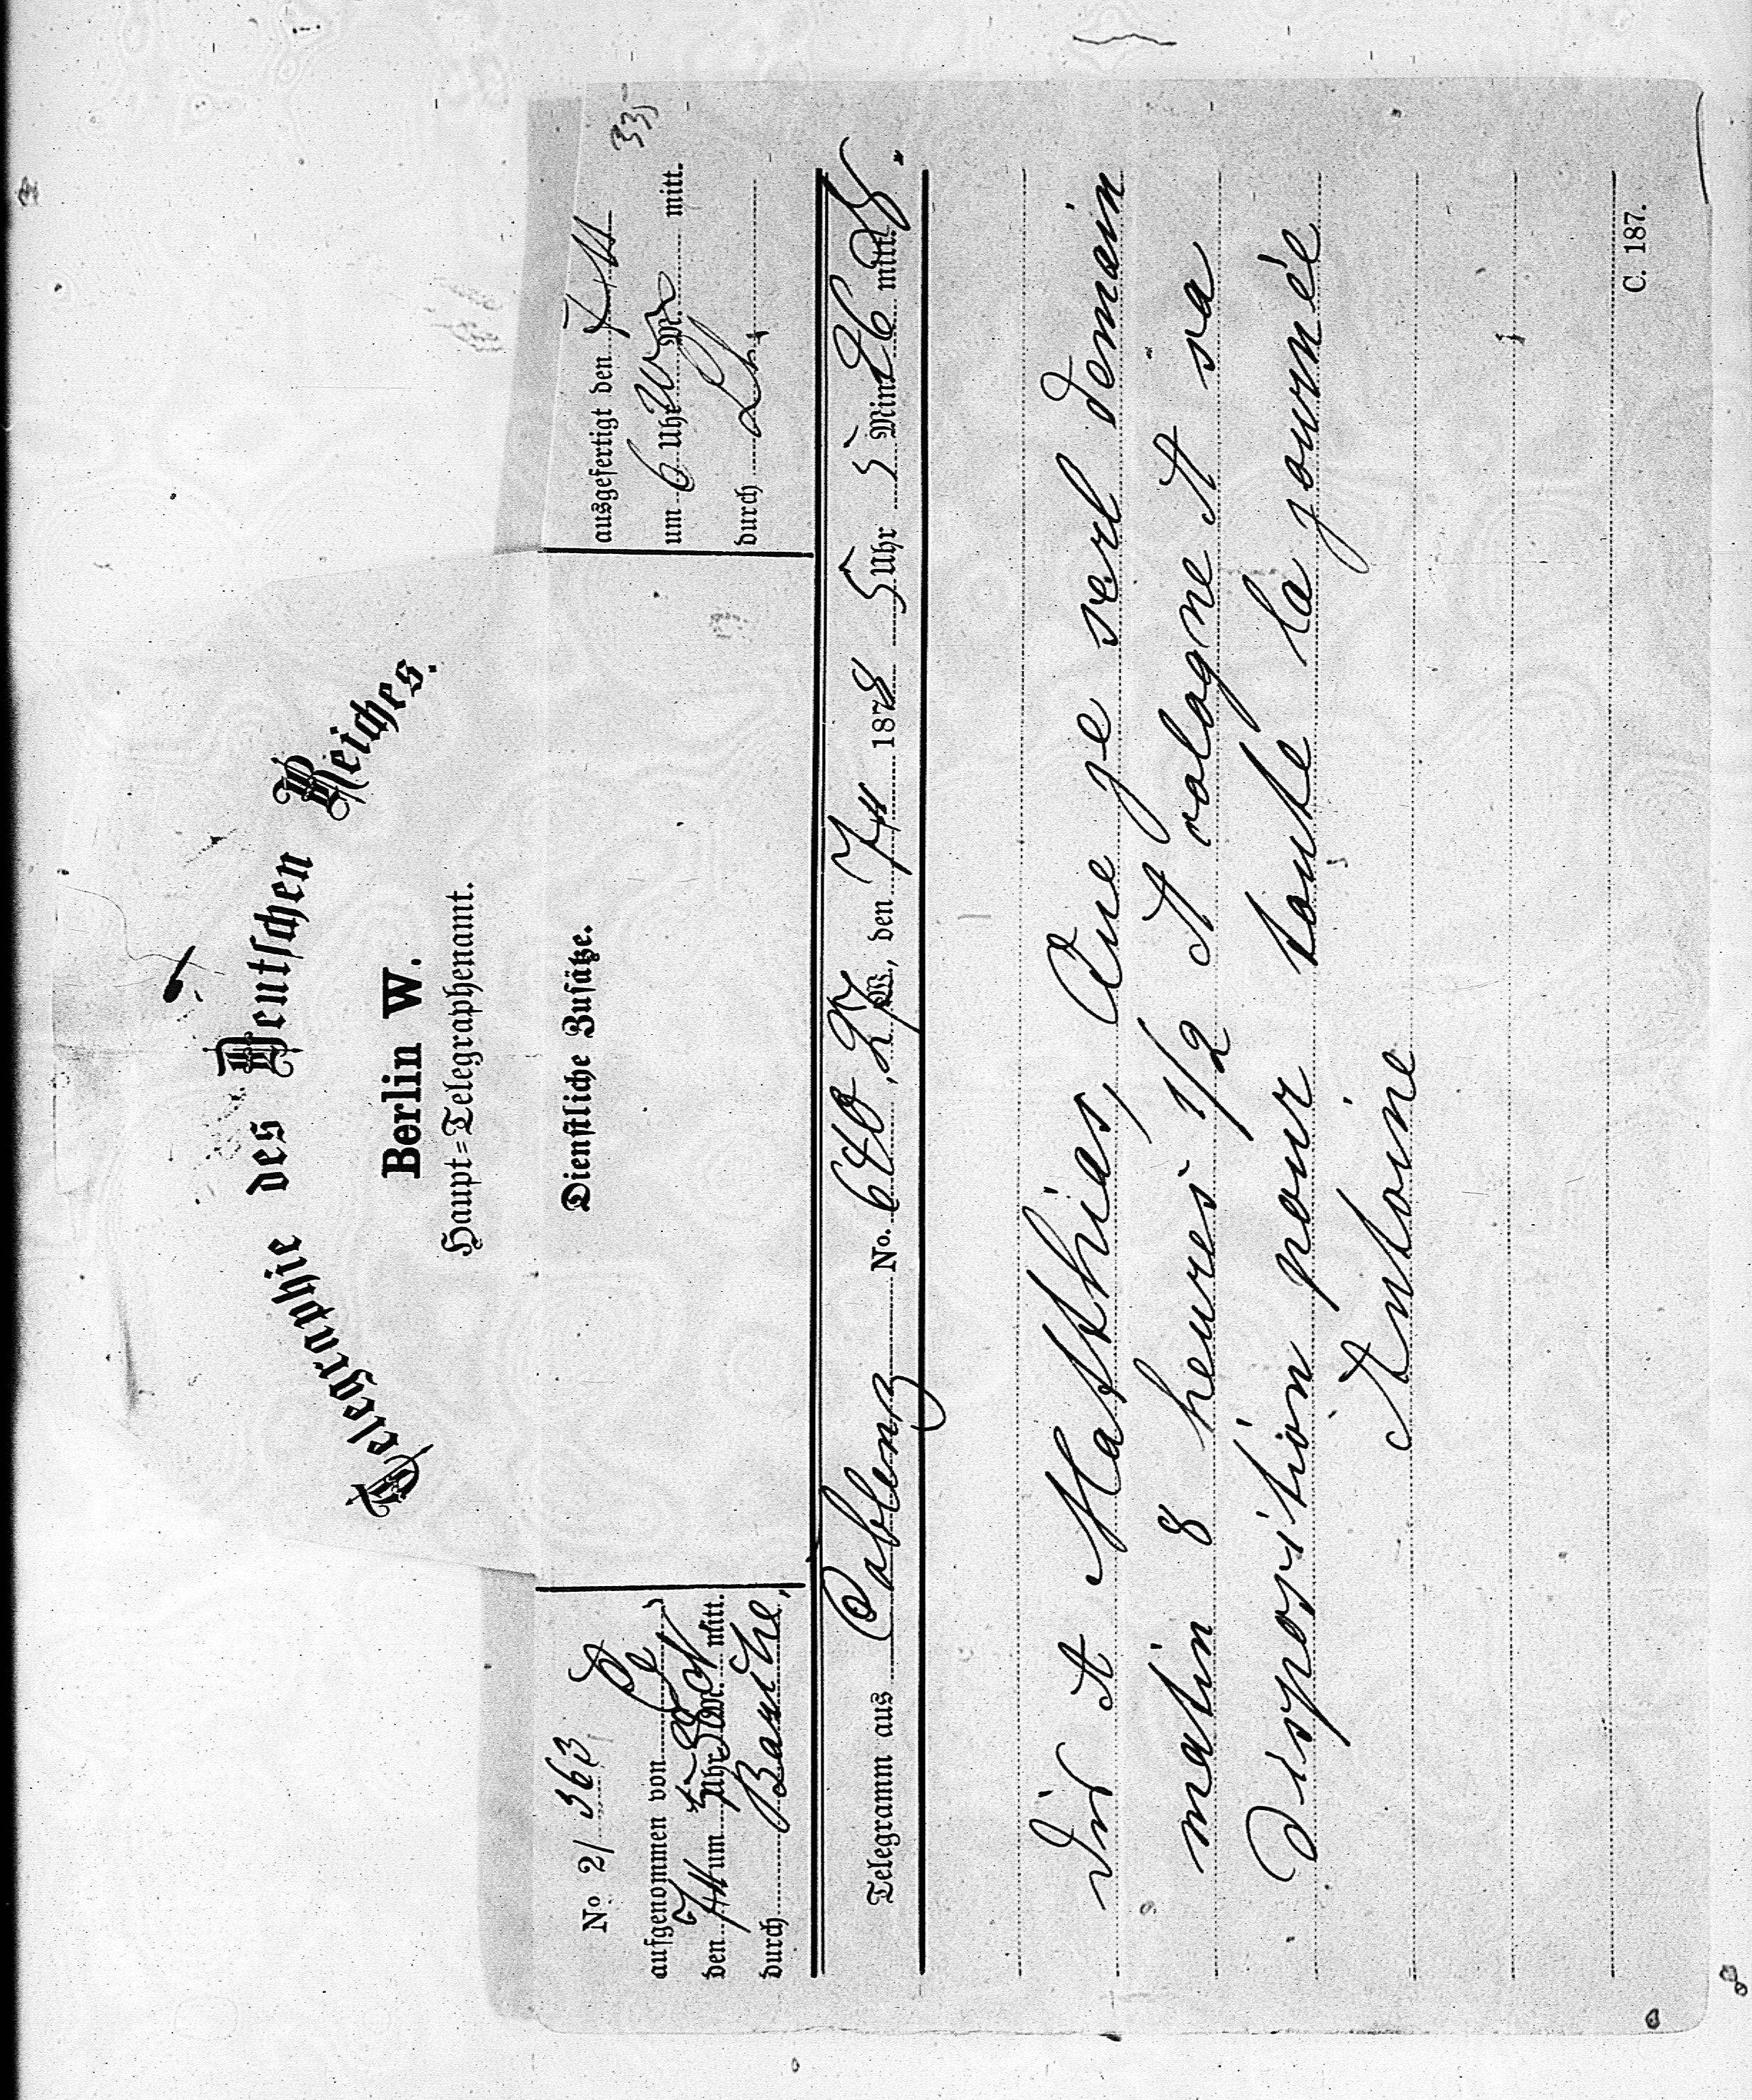 Telegraphie des Deutschen Reiches.
Berlin W.
Haupt-Telegraphenamt.
No 2/ 363
aufgenommen von
den 7/4 um 5 Uhr M. mitt.
durch
Dienstliche Zusätze.
ausgefertigt den 7/4
um 6 Uhr M. mitt.
durch
335
Telegramm aus Coblenz No. 640, 27 W., den 7/4 1878 5 Uhr 5 Min 26 mitt.
Dis A Matthias, Que je serl demain
matin 8 heures 1/2 A cologne A sa
Disposition pour toute la journée
Antoine
C. 187.